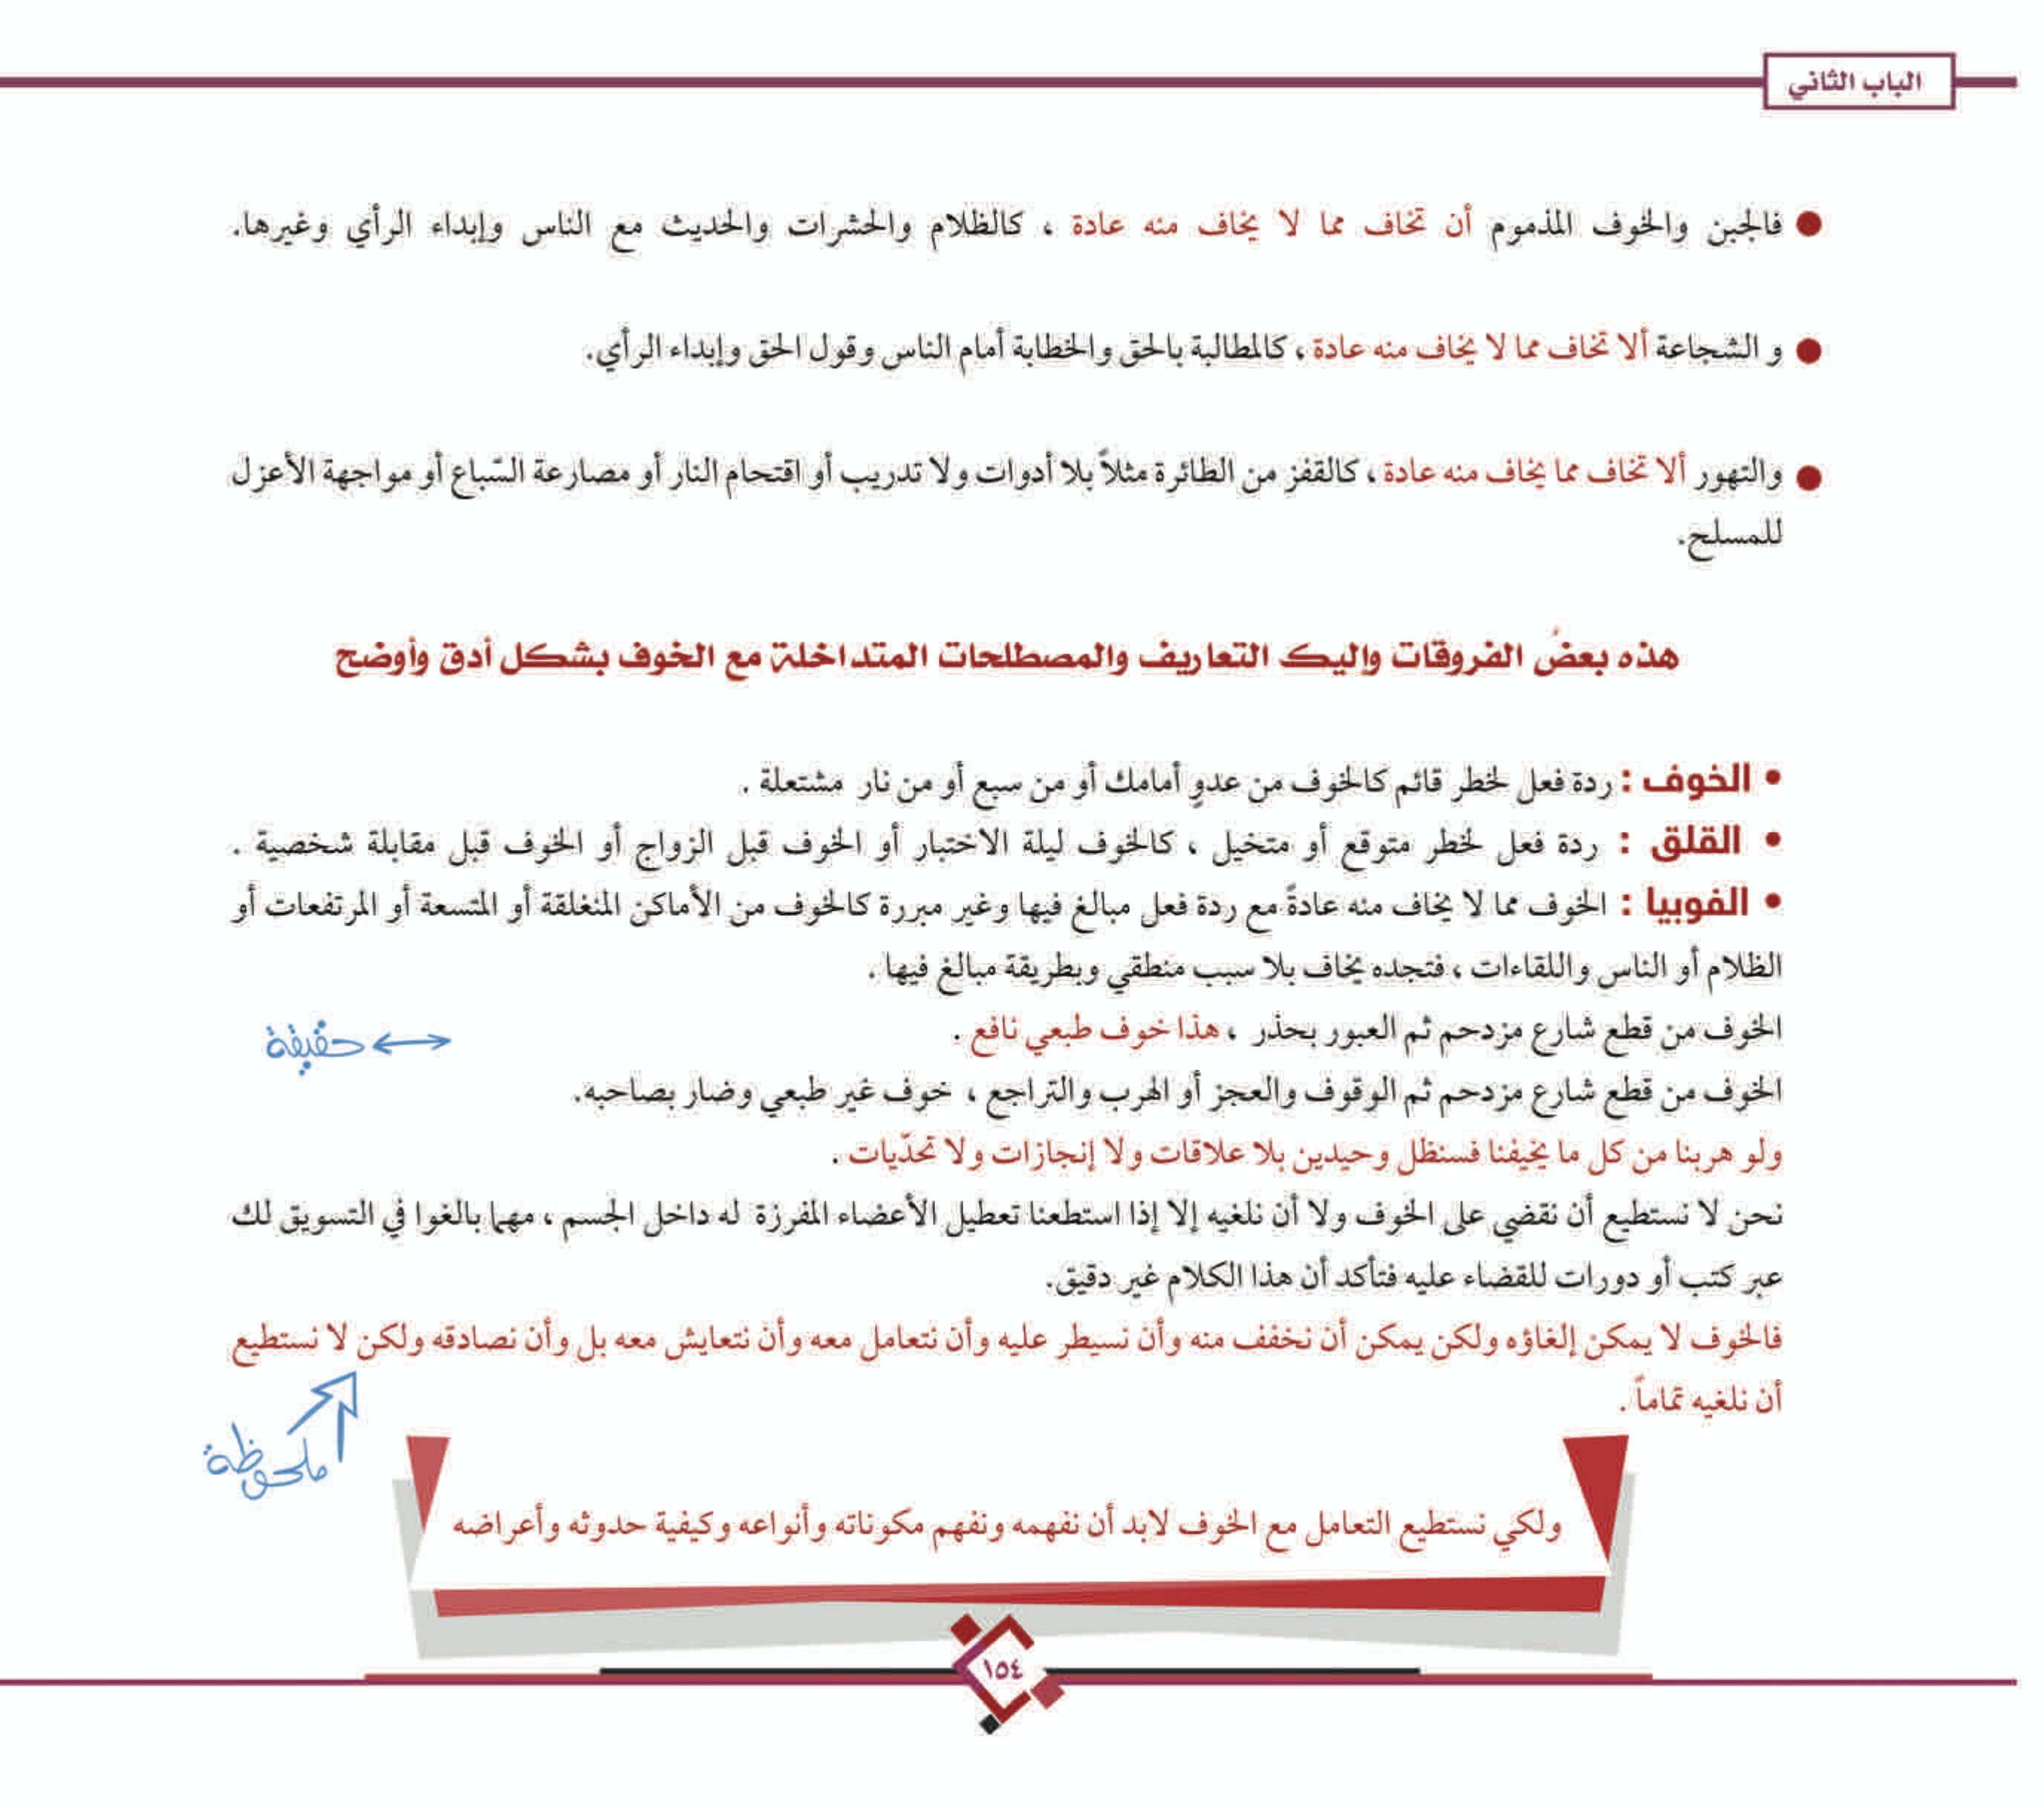 الباب الثاني
● فالجبن والخوف المذموم أن تخاف مما لا يخاف منه عادة ، كالظلام والحشرات والحديث مع الناس وإبداء الرأي وغيرها.
● و الشجاعة ألا تخاف مما لا يخاف منه عادة ، كالمطالبة بالحق والخطابة أمام الناس وقول الحق وإبداء الرأي.
● والتهور ألا تخاف مما يخاف منه عادة ، كالقفز من الطائرة مثلاً بلا أدوات ولا تدريب أو اقتحام النار أو مصارعة السّباع أو مواجهة الأعزل
للمسلح.
هذه بعضُ الفروقات وإليك التعاريف والمصطلحات المتداخلة مع الخوف بشكل أدق وأوضح
• الخوف : ردة فعل لخطر قائم كالخوف من عدوٍ أمامك أو من سبع أو من نار مشتعلة .
• القلق : ردة فعل لخطر متوقع أو متخيل ، كالخوف ليلة الاختبار أو الخوف قبل الزواج أو الخوف قبل مقابلة شخصية .
• الفوبيا : الخوف مما لا يخاف منه عادةً مع ردة فعل مبالغ فيها وغير مبررة كالخوف من الأماكن المنغلقة أو المتسعة أو المرتفعات أو
الظلام أو الناس واللقاءات ، فتجده يخاف بلا سبب منطقي وبطريقة مبالغ فيها .
الخوف من قطع شارع مزدحم ثم العبور بحذر ، هذا خوف طبعي نافع .
حقيقة
الخوف من قطع شارع مزدحم ثم الوقوف والعجز أو الهرب والتراجع ، خوف غير طبعي وضار بصاحبه.
ولو هربنا من كل ما يخيفنا فسنظل وحيدين بلا علاقات ولا إنجازات ولا تحدّيات .
نحن لا نستطيع أن نقضي على الخوف ولا أن نلغيه إلا إذا استطعنا تعطيل الأعضاء المفرزة له داخل الجسم ، مهما بالغوا في التسويق لك
عبر كتب أو دورات للقضاء عليه فتأكد أن هذا الكلام غير دقيق.
فالخوف لا يمكن إلغاؤه ولكن يمكن أن نخفف منه وأن نسيطر عليه وأن نتعامل معه وأن نتعايش معه بل وأن نصادقه ولكن لا نستطيع
أن نلغيه تماماً .
ملحوظة
ولكي نستطيع التعامل مع الخوف لابد أن نفهمه ونفهم مكوناته وأنواعه وكيفية حدوثه وأعراضه
١٥٤